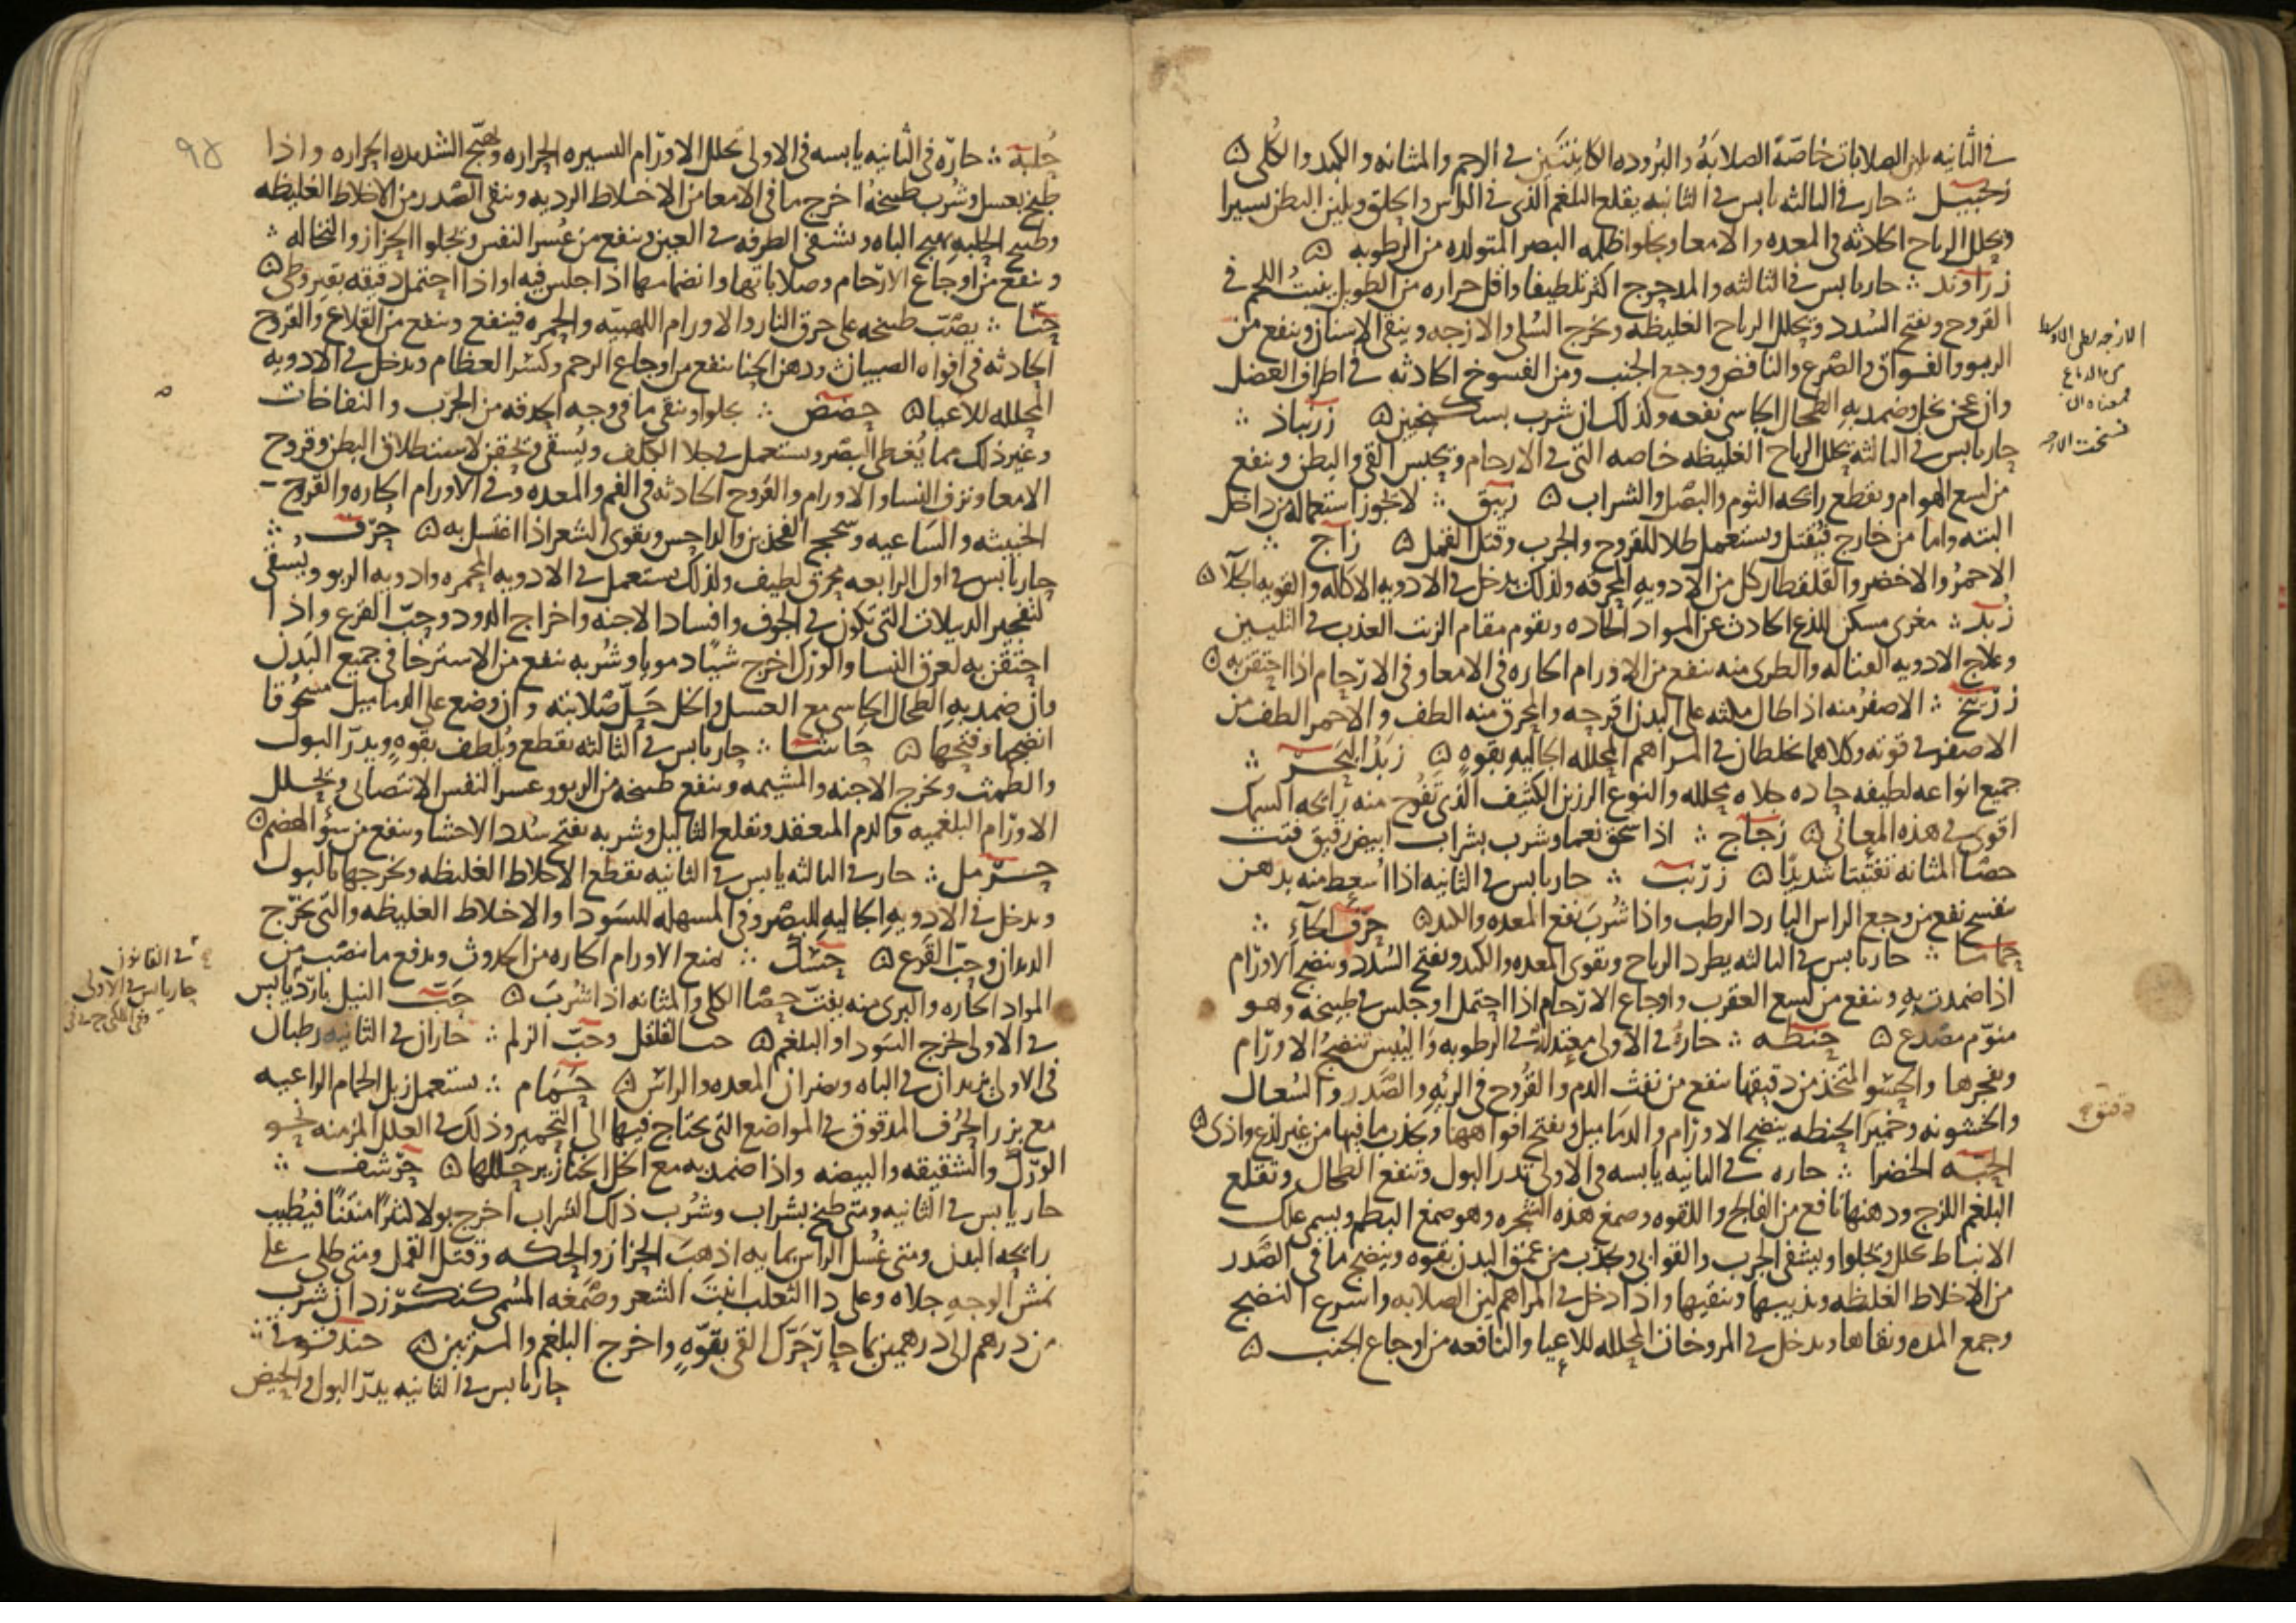 في الثانيه يلين الصلابات خاصّة الصلابَهُ والبُروده الكاينتَين في الرحم والمثانه والكبد والكُلى ۞
زنجبيل ؞ حار في الثالثه يابس في الثانيه يقلع البلغم الذى في الراس والحلق ويلين البطن يسيرا
ويحلل الرياح الحادثه في المعده والامعا ويجلوا ظلمه البصر المتولده من الرطوبه ۞
زراوند ؞ حار يابس في الثالثه والمدحرج اكثر تلطيفا واقل حراره من الطويل ينبتُ اللحم في
القروح ويفتح السُدد ويحلل الرياح الغليظه ويخرج السُلى والازجه وينقى الاسنان وينفع من
الربو والفواق والصرع والنافض ووجع الجنب ومن الفسوخ الحادثه في اطراف العضل
وان عجن بخل وضمد به الطحال الجاسى نفعه ولذلك ان شرب بسكنجبين ۞ زرنباد ؞
حار يابس في الثالثه يحلل الرياح الغليظه خاصه التى في الارحام ويحبس القى والبطن وينفع
من لسع الهوام ويقطع رائحه الثوم والبصل والشراب ۞ زيبق ؞ لا يجوز استعماله من داخل
البته واما من خارج فيُقتل ويستعمل طلا للقروح والجرب وقتل القمل ۞ زاج ؞
الاحمرُ والاخضر والقلقطار كل من الادويه المحرقه ولذلك يدخل في الادويه الاكاله والقويه الجلآ ۞
زُبد ؞ مغرى مسكن للذع الحادث عن المواد الحاده ويقوم مقام الزيت العذب في التليين
وعلاج الادويه القتاله والطرى منه ينفع من الاورام الحاره في الامعا وفي الارحام اذا احتقن به ۞
زرنيخ ؞ الاصفرُ منه اذا طال مكثه على البدن اقرحه والمحرق منه الطف والاحمر الطف من
الاصفر في قوته وكلاهما يخلطان في المراهم المحلله الجاليه بقوه ۞ زبَدُ البَحر ؞
جميع انواعه لطيفه حاده جلاه محلله والنوع الرزين الكثيف الذى تَفُوح منه رائحه السمك
اقوى في هذه المعانى ۞ زجاج ؞ اذا سحق نعما وشرب بشراب ابيض رقيق فتت
حصا المثانه تفتيتا شديدًا ۞ زرنب ؞ حار يابس في الثانيه اذا اُسعط منه بدهن
بنفسج نفع من وجع الراس البارد الرطب واذا شُربَ نفع المعده والكبد ۞ حرف الحآء ؞
حماما ؞ حار يابس في الثالثه يطرد الرياح ويقوى المعده والكبد ويفتح السُدد وينضج الاورام
اذا ضمدت به وينفع من لسع العقرب واوجاع الارحام اذا احتمل او جلس في طبيخه وهو
منوّم مصدع ۞ حنطه ؞ حارة في الاولى معتدلة في الرطوبه واليُبس تنضج الاورام
وتفجرها والحسُو المتخذ من دقيقها ينفع من نفث الدم والقُروح في الرئه والصَّدر والسُعال
والخشونه وخمير الحنطه ينضج الاورام والدماميل ويفتح افواهها ويجذب ما فيها من غير لذع واذى ۞
الحبّه الخضرا ؞ حاره في الثانيه يابسه في الاولى تدر البول وتنفع الطحال وتقلع
البلغم اللزج ودهنها نافع من الفالج واللقوه وصمغ هذه الشجره وهو صمغ البطم ويسمى علك
الانباط يحلل ويجلوا ويشفى الجرب والقوابى ويجذب من عمق البدن بقوه وينضج ما في الصَّدر
من الاخلاط الغليظه ويذيبها وينقيها واذا دخل في المراهم لين الصلابه واسرع النضج
وجمع المده ونقاها ويدخل في المروخات المحلله للاعيا والنافعه من اوجاع الجنب ۞
حُلبَه ؞ حارّه في الثانيه يابسه في الاولى تحلل الاورام اليسيره الحراره وتهيّج الشديده الحراره واذا
طبخ بعسل وشُرب طبيخهُا اخرج ما في الامعا من الاخلاط الرديه وينقى الصدر من الاخلاط الغليظه
وطبيخ الحلبه يهيج الباه ويشفى الطرفه في العين وينفع من عُسر النفس ويجلوا الحزاز والنخاله ؞
وينفع من اوجاع الارحام وصلاباتها وانضمامها اذا جلس فيه او اذا احتمل دقيقه بقيروطى ۞
حنّا ؞ يصبّ طبيخه على حرق النار والاورام اللهبيّه والجمره فينفع وينفع من القلاع والقروح
الحادثه في افواه الصبيان ودهن الحنا ينفع من اوجاع الرحم وكسر العظام ويدخل في الادويه
المحلله للاعيا ۞ حضض ؞ يجلوا وينقى ما في وجه الحدقه من الجرب والنفاخات
وغير ذلك مما يُغطى البصر ويستعمل في جلا الكلف ويُسقى ويحقن لاستطلاق البطن وقروح
الامعا ونزف النسا والاورام والقروح الحادثه في الفم والمعده وفي الاورام الحاره والقروح
الخبيثه والساعيه وسحج الفخذين والداحس ويقوى الشعر اذا اغتسل به ۞ حُرف ؞
حار يابس في اول الرابعه محرق لطيف ولذلك يستعمل في الادويه المحمره وادويه الربو ويُسقى
لتفجير الدبيلات التى تكون في الجوف وافساد الاجنه واخراج الدود وحبّ القرع واذا
احتقن به لعرق النسا والورك اخرج شيًا دمويا وشُربه ينفع من الاسترخا في جميع البَدن
وان ضمد به الطحال الجاسى مع العسل والخل حَلّل صَلابته وان وضع على الدماميل مسحُوقا
انضجها وفتحها ۞ حَاشا ؞ حار يابس في الثالثه يقطع ويُلطف بقوهٍ ويدرّ البول
والطمث ويخرج الاجنه والمشيمه وينفع طبيخه من الربو وعسر النفس الانتصابى ويحلل
الاورام البلغميه والدم المنعقد ويقلع الثآليل وشربه يفتح سُدد الاحشا وينفع من سؤ الهضم ۞
حرمل ؞ حار في الثالثه يابس في الثانيه يقطع الاخلاط الغليظه ويخرجها بالبول
ويدخل في الادويه الجاليه للبصر وفي المسهله للسَودا والاخلاط الغليظه والتى تخرج
الديدان وحبّ القرع ۞ حَسَك ؞ يمنع الاورام الحاره من الحدوث ويدفع ما ينصَب من
المواد الحاره والبرى منه يفتّ حصا الكلى والمثانه اذا شُربَ ۞ حَبّ النيل باردٌ يابس
في الاولى يخرج السَودا والبلغم ۞ حب القلقل وحبّ الزلم ؞ حاران في الثانيه رطبان
في الاولى يزيدان في الباه ويضران المعده والراس ۞ حَمَام ؞ يستعمل زبل الحمام الراعيه
مع بزر الحُرف المدقوق في المواضع التى يحتاج فيها الى التحمير وذلك في العلل المزمنه نحو
الورك والشقيقه والبيضه واذا ضمد به مع الخل الخنازير حللها ۞ حرشف ؞
حار يابس في الثانيه ومتى طبخ بشراب وشُرب ذلك الشراب اخرج بولا كثيرًا منتنًا فيُطيب
رائحه البدن ومتى غُسل الراس بمايه اذهبَ الحزاز والحكه وقتل القمل ومتى طلى على
نمش الوجه جلاه وعلى دا الثعلب انبَت الشعر وصَمغه المُسمى كنكرزد ان شرب
من درهم الى درهمين بما حارّ حَرّك القى بقوّهٍ واخرج البلغم والمرتين ۞ حندقوقى ؞
حار يابس في الثانيه يدرّ البول والحيض
في القانون
حار يابس في الاولى